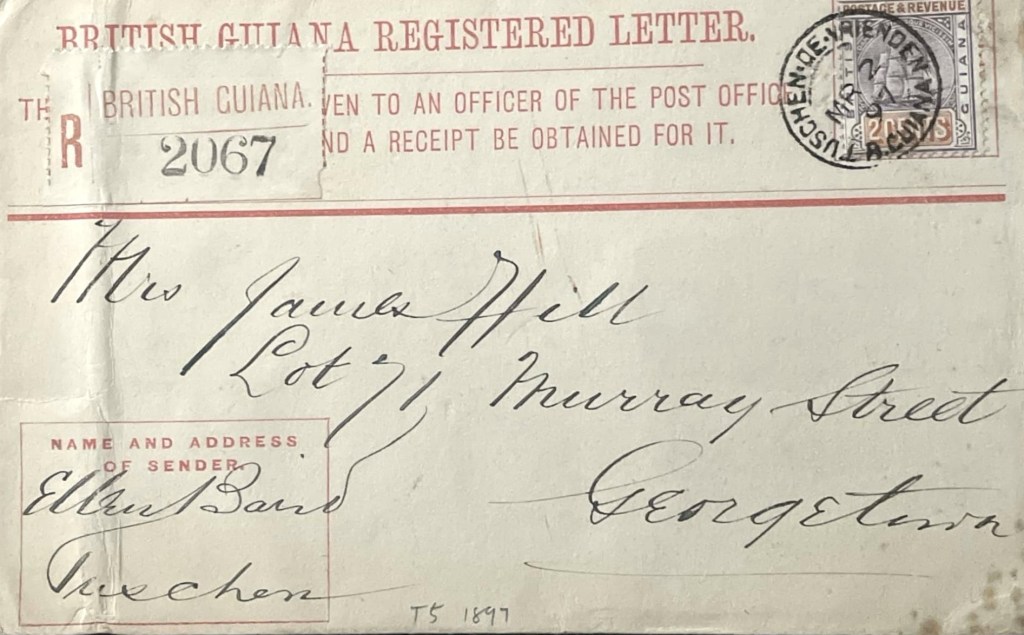 BRITISH GUIANA REGISTERED LETTER.
POSTAGE & REVENUE
TH VEN TO AN OFFICER OF THE POST OFFIC
ND A RECEIPT BE OBTAINED FOR IT.
R BRITISH GUIANA.
2067
TUSCHEN-DE-VRIENDEN
2
MR
97
B.GUIANA
GUIANA
2 CENTS
Mrs James Hill
Lot 71 Murray Street
Georgetown
NAME AND ADDRESS
OF SENDER
Ellen Baird
Tuschen
T5 1897